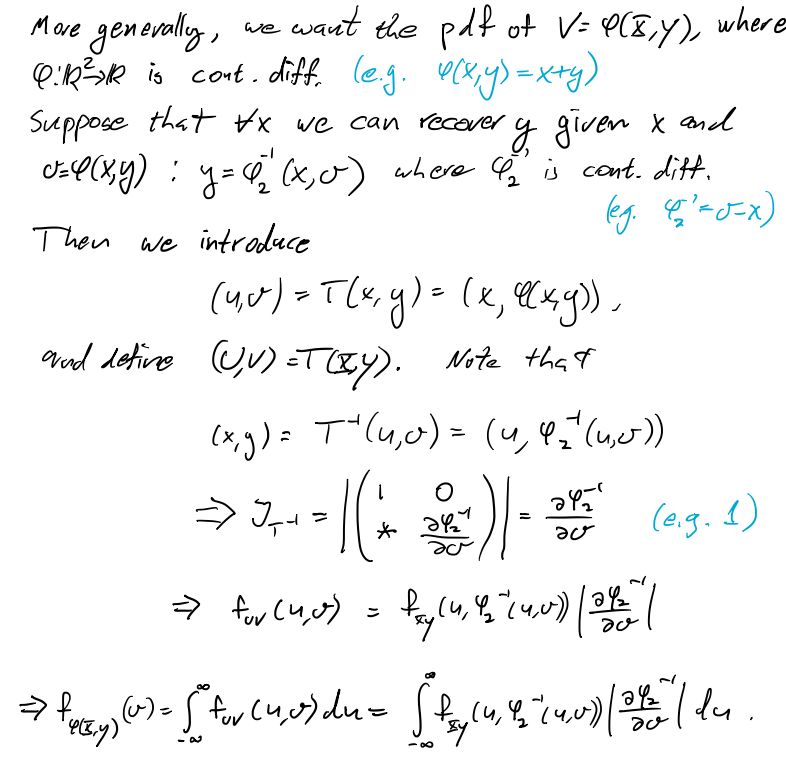 More generally, we want the pdf of V = φ(X,Y), where
φ:ℝ²→ℝ is cont. diff. (e.g. φ(x,y)=x+y)
Suppose that ∀x we can recover y given x and
v=φ(x,y) : y = φ₂⁻¹(x,v) where φ₂⁻¹ is cont. diff.
(eg. φ₂⁻¹=v-x)
Then we introduce
(u,v) = T(x,y) = (x, φ(x,y)),
and define (U,V) = T(X,Y). Note that
(x,y) = T⁻¹(u,v) = (u, φ₂⁻¹(u,v))
⇒ J_{T⁻¹} = |(1 0 ; * ∂φ₂⁻¹/∂v)| = ∂φ₂⁻¹/∂v (e.g. 1)
⇒ f_{UV}(u,v) = f_{XY}(u, φ₂⁻¹(u,v)) |∂φ₂⁻¹/∂v|
⇒ f_{φ(X,Y)}(v) = ∫_{-∞}^{∞} f_{UV}(u,v) du = ∫_{-∞}^{∞} f_{XY}(u, φ₂⁻¹(u,v)) |∂φ₂⁻¹/∂v| du .